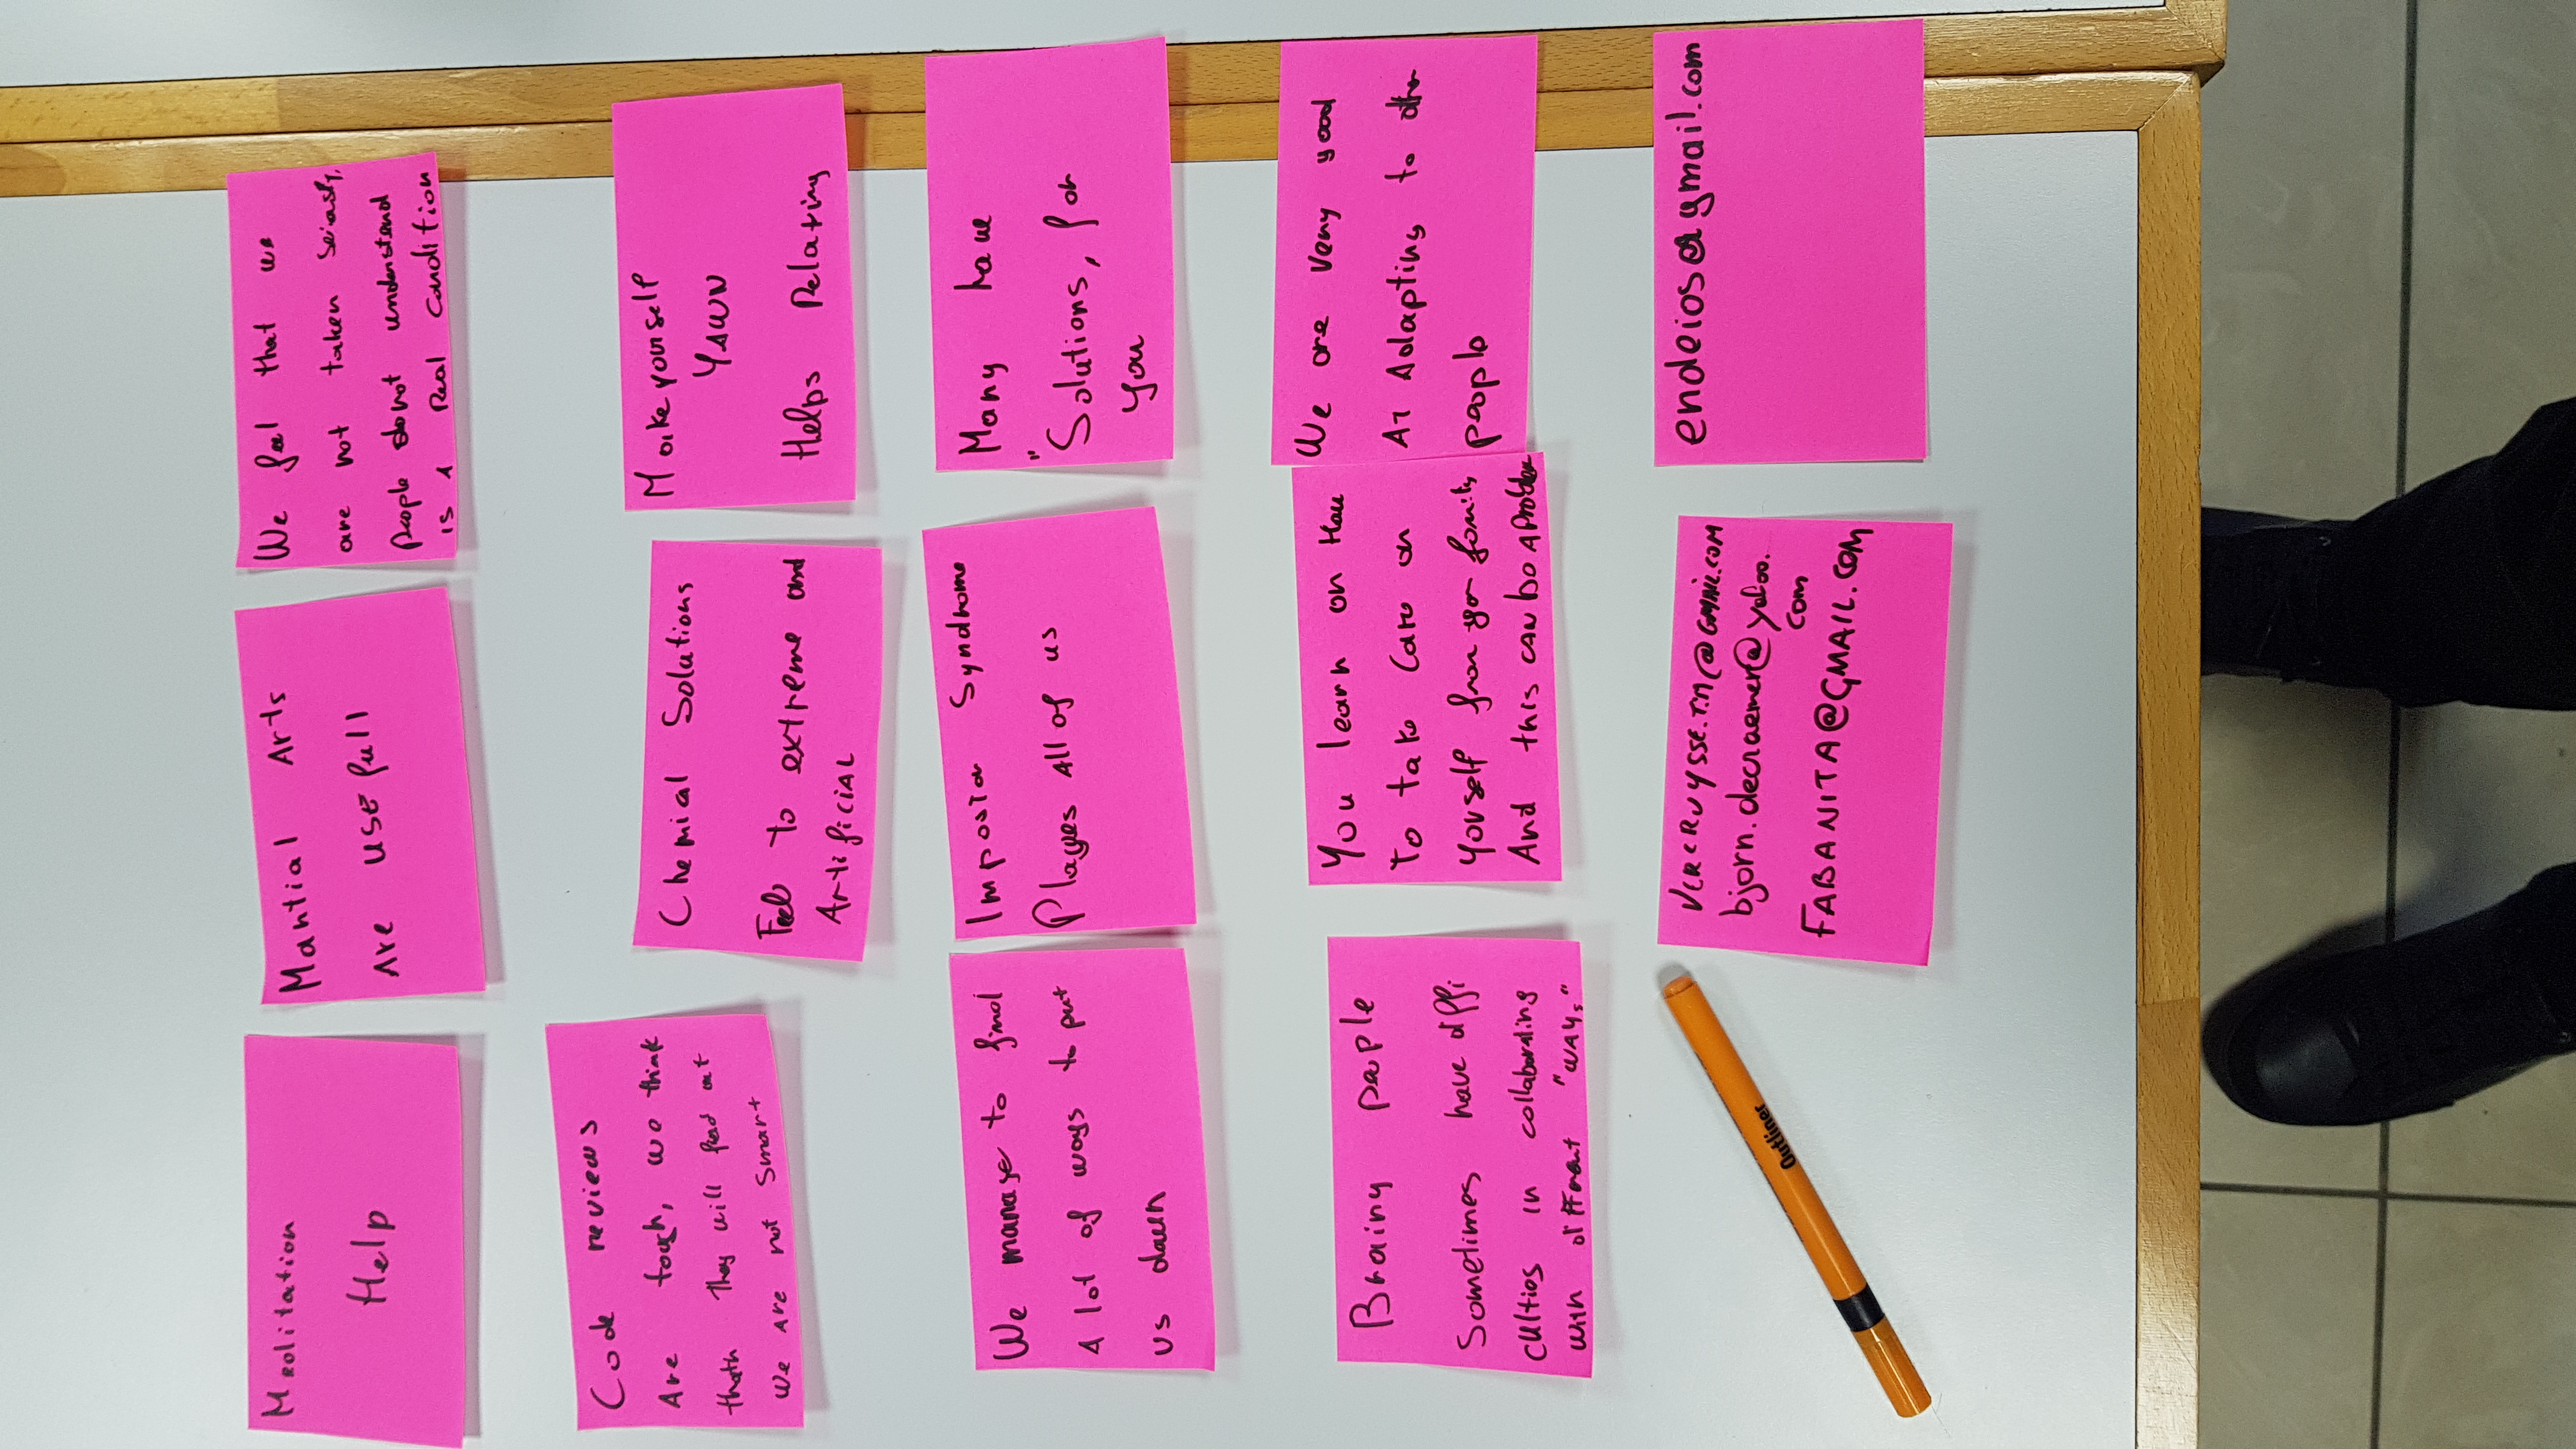 Meditation
Help
Martial Arts
Are USEfull
We feel that we
are not taken
people do not understand
is A Real Condition
Code reviews
Are tough, we think
thath They will find out
We Are not Smart
Chemical Solutions
Feel To extreme and
ArtificiAL
Make yourself
YAWN
Helps Relaxing
We manage to find
A lot of ways to put
us down
Impostor Syndrome
Plagues All of us
Many have
"Solutions, for
you
Brainy people
Sometimes have diffi
culties in collaborating
with different "WAYs"
You learn on How
To take Care on
yourself from your family
And this can be A Problem
We are very good
AT Adapting to other
people
VERCRUYSSE.T.M@GMAIL.COM
bjorn.decraemer@yahoo.
com
FABANITA@GMAIL.COM
endeios@gmail.com
Outliner